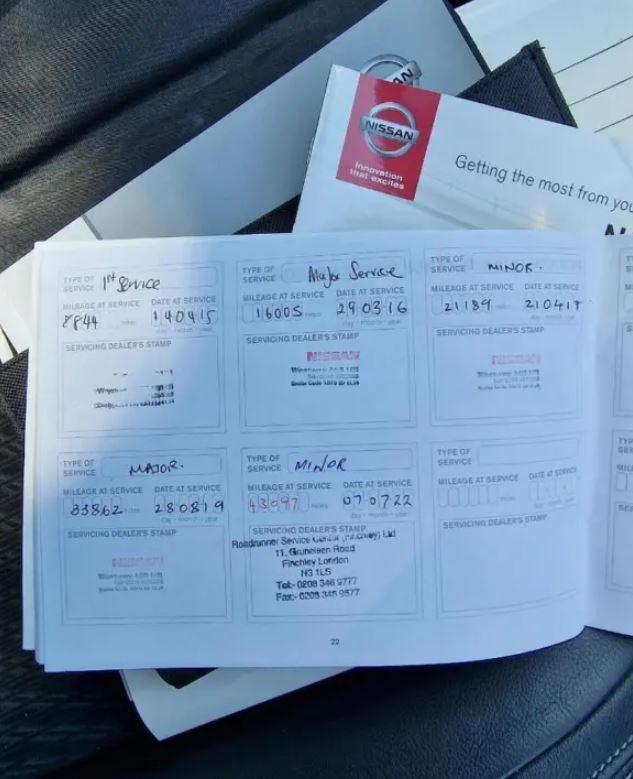 NISSAN
Innovation
that excites
Getting the most from you
TYPE OF
SERVICE
1st Service
MILEAGE AT SERVICE
DATE AT SERVICE
8844 miles
140415
SERVICING DEALER'S STAMP
TYPE OF
SERVICE
Major Service
MILEAGE AT SERVICE
DATE AT SERVICE
16005 miles
290316
day - month - year
SERVICING DEALER'S STAMP
NISSAN
TYPE OF
SERVICE
MINOR.
MILEAGE AT SERVICE
DATE AT SERVICE
21189 miles
210417
day - month - year
SERVICING DEALER'S STAMP
NISSAN
TYPE OF
SERVICE
MAJOR.
MILEAGE AT SERVICE
DATE AT SERVICE
33862 miles
280819
day - month - year
SERVICING DEALER'S STAMP
NISSAN
TYPE OF
SERVICE
MINOR
MILEAGE AT SERVICE
DATE AT SERVICE
43097 miles
070722
day - month - year
SERVICING DEALER'S STAMP
Roadrunner Service Center (Finchley) Ltd
11, Gruneisen Road
Finchley London
N3 1LS
Tel:- 0208 346 9777
Fax:- 0208 346 9577
TYPE OF
SERVICE
MILEAGE AT SERVICE
DATE AT SERVICE
miles
SERVICING DEALER'S STAMP
22